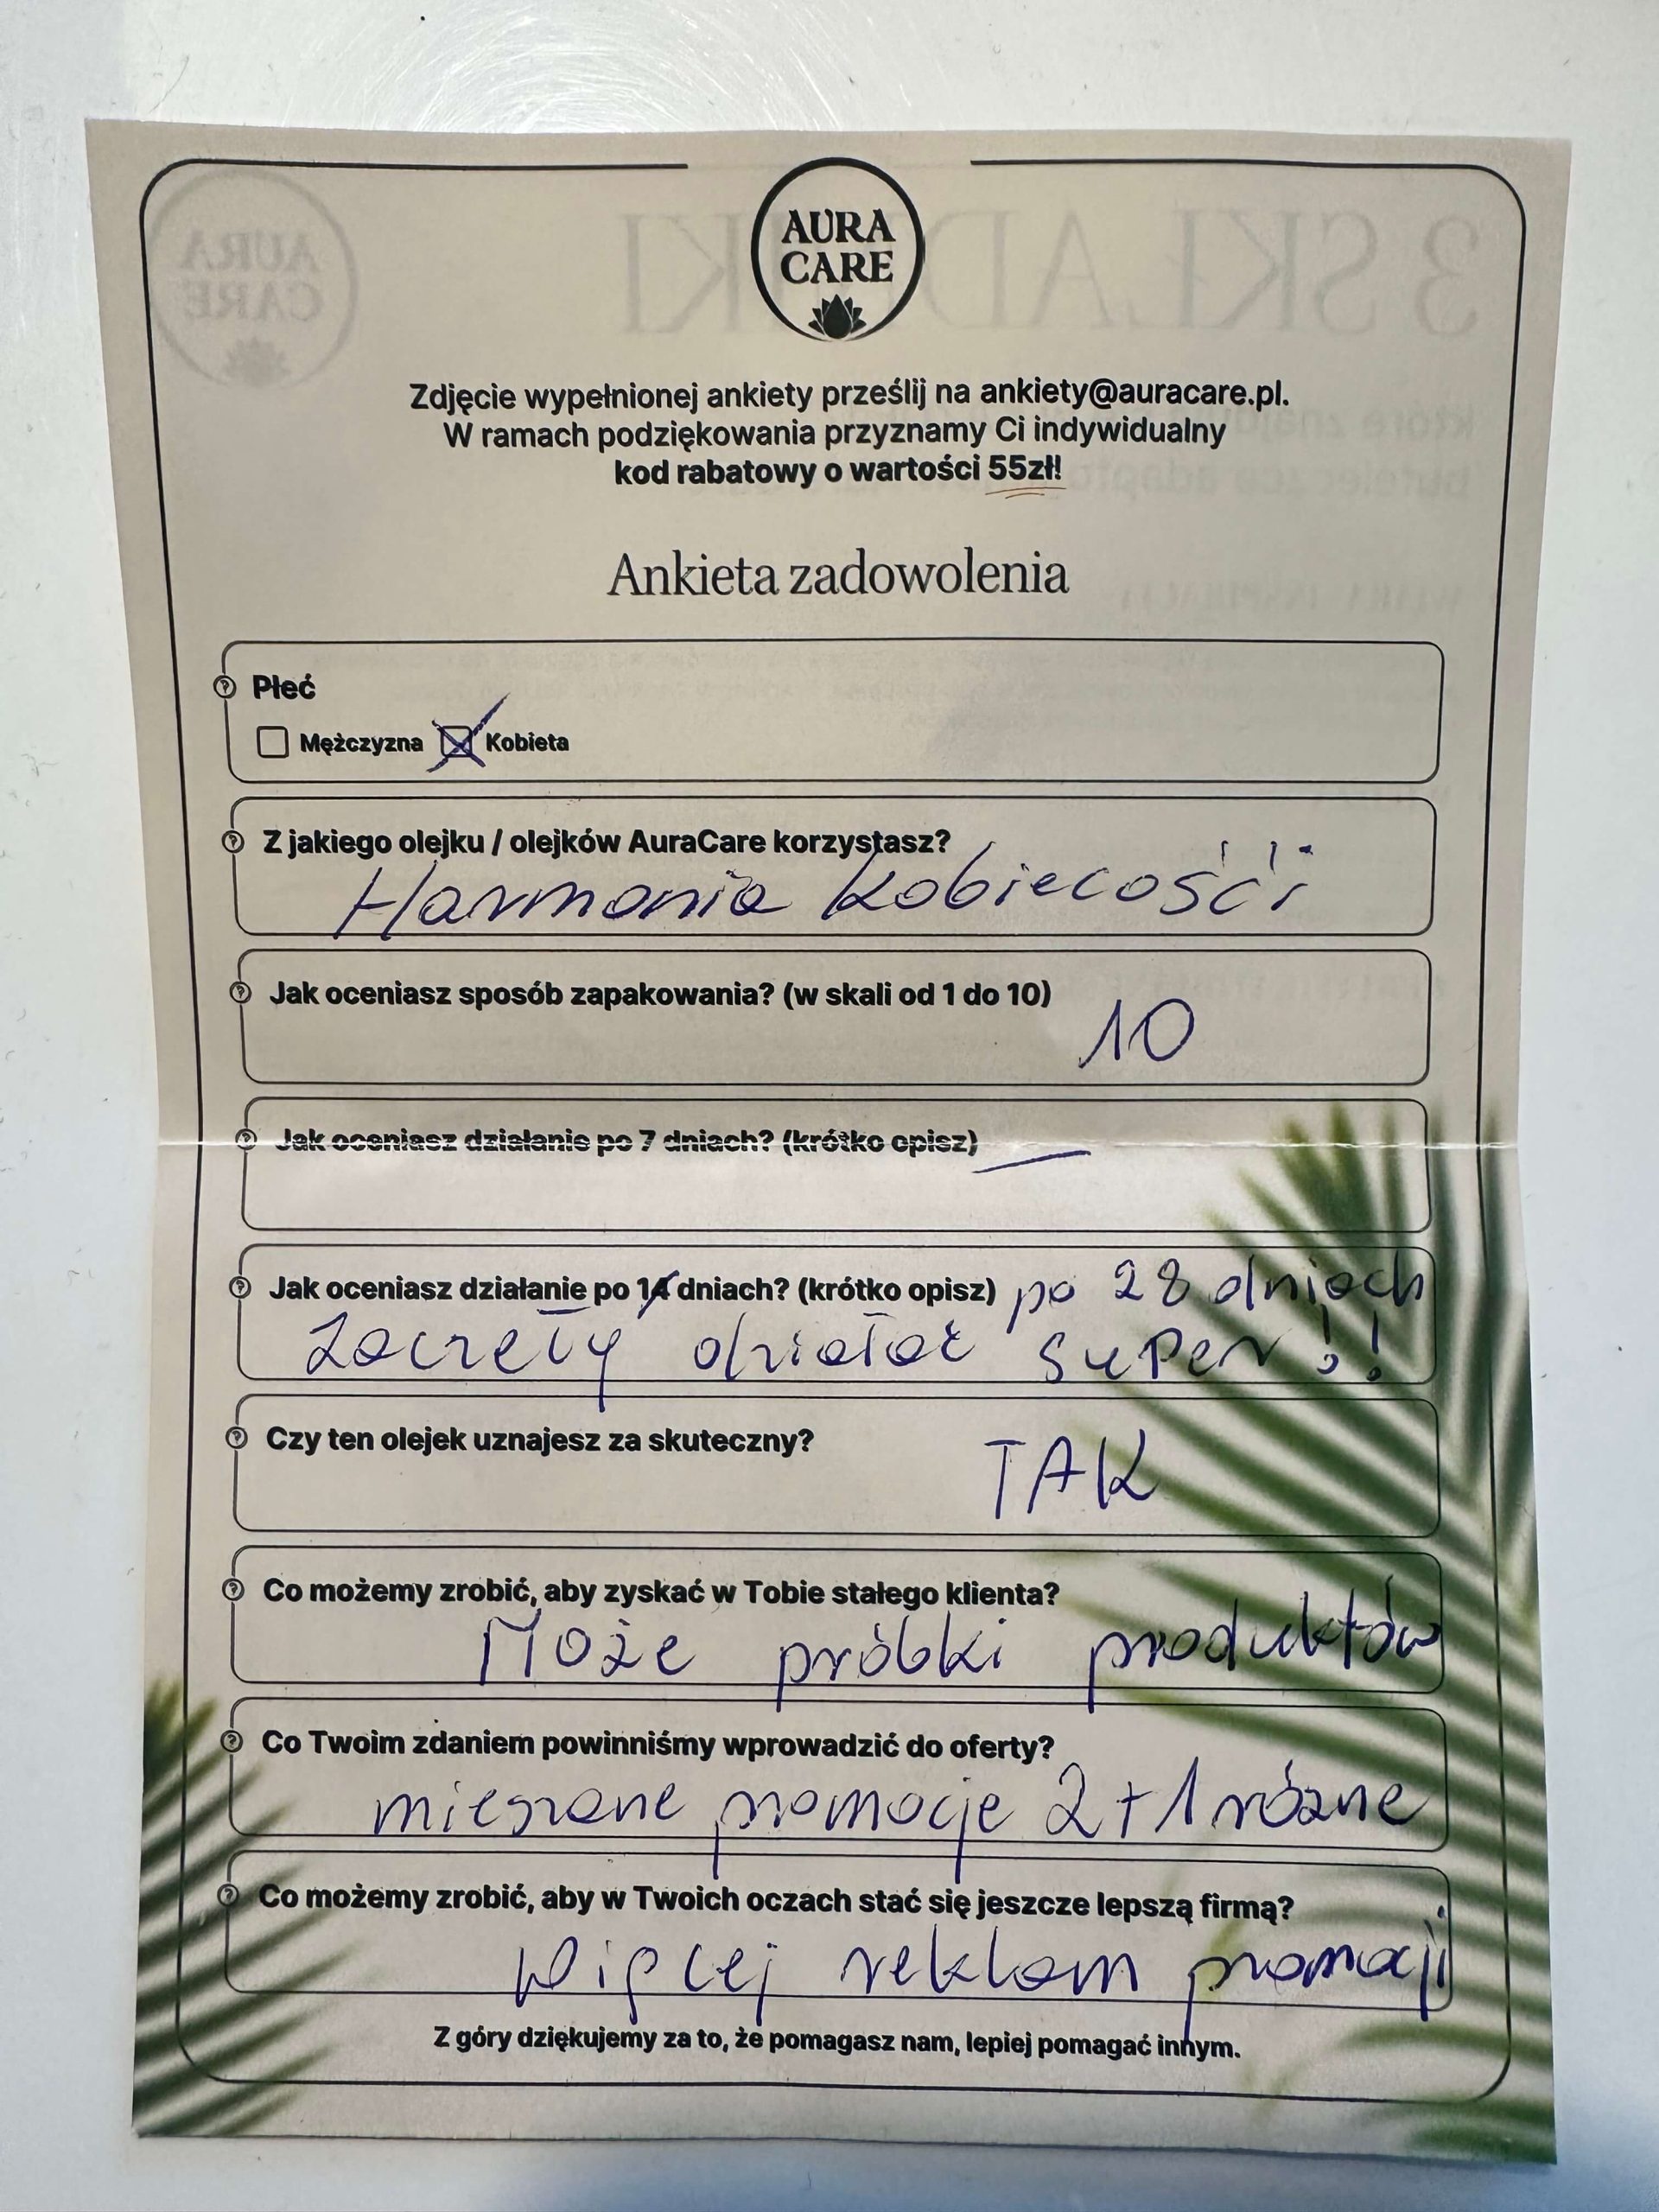 AURA
CARE
Zdjęcie wypełnionej ankiety prześlij na ankiety@auracare.pl.
W ramach podziękowania przyznamy Ci indywidualny
kod rabatowy o wartości 55zł!
Ankieta zadowolenia
Płeć
Mężczyzna Kobieta
Z jakiego olejku / olejków AuraCare korzystasz?
Harmonia kobiecości
Jak oceniasz sposób zapakowania? (w skali od 1 do 10)
10
Jak oceniasz działanie po 7 dniach? (krótko opisz)
Jak oceniasz działanie po 14 dniach? (krótko opisz) po 28 dniach
zaczęły działać super!!
Czy ten olejek uznajesz za skuteczny?
TAK
Co możemy zrobić, aby zyskać w Tobie stałego klienta?
Może próbki produktów
Co Twoim zdaniem powinniśmy wprowadzić do oferty?
mieszane promocje 2+1 różne
Co możemy zrobić, aby w Twoich oczach stać się jeszcze lepszą firmą?
Więcej reklam promocji
Z góry dziękujemy za to, że pomagasz nam, lepiej pomagać innym.